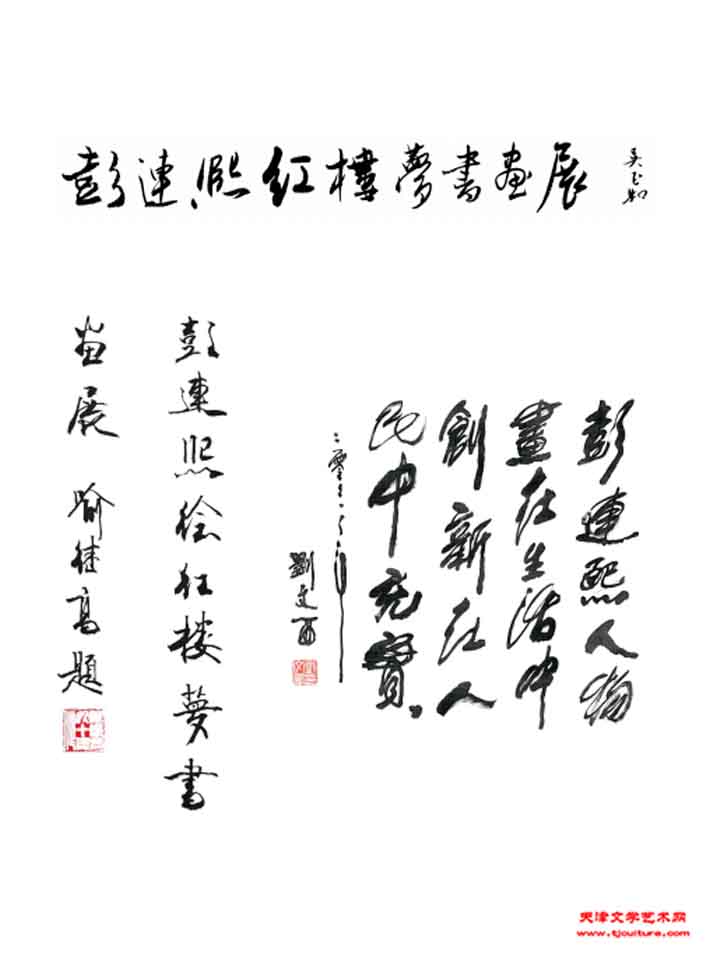 彭連熙红樓夢書画展
吴玉如
彭連熙人物
畫在生活中
創新在人
民中充實
劉文西
彭連熙绘红楼夢書
画展 喻继高題
天津文学艺术网
www.tjculture.com